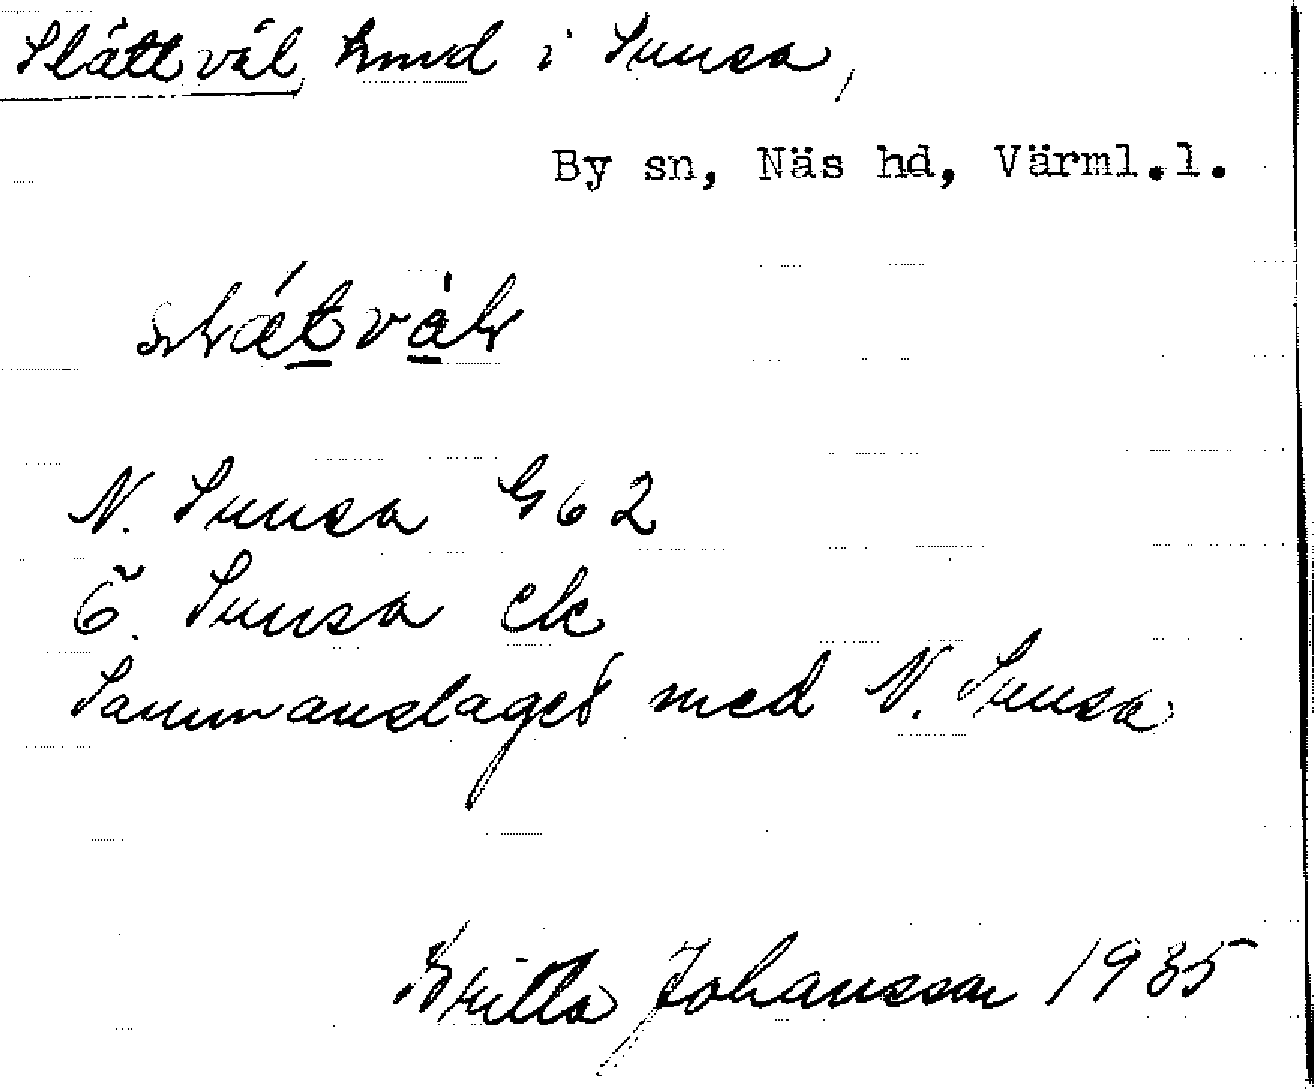 Slättvål, hmd i Smusa,
By sn, Näs hd, Värml.l.
N. Smusa G62
Ö. Smusa ek
Sammanslaget med N. Smusa
Britta Johansson 1935